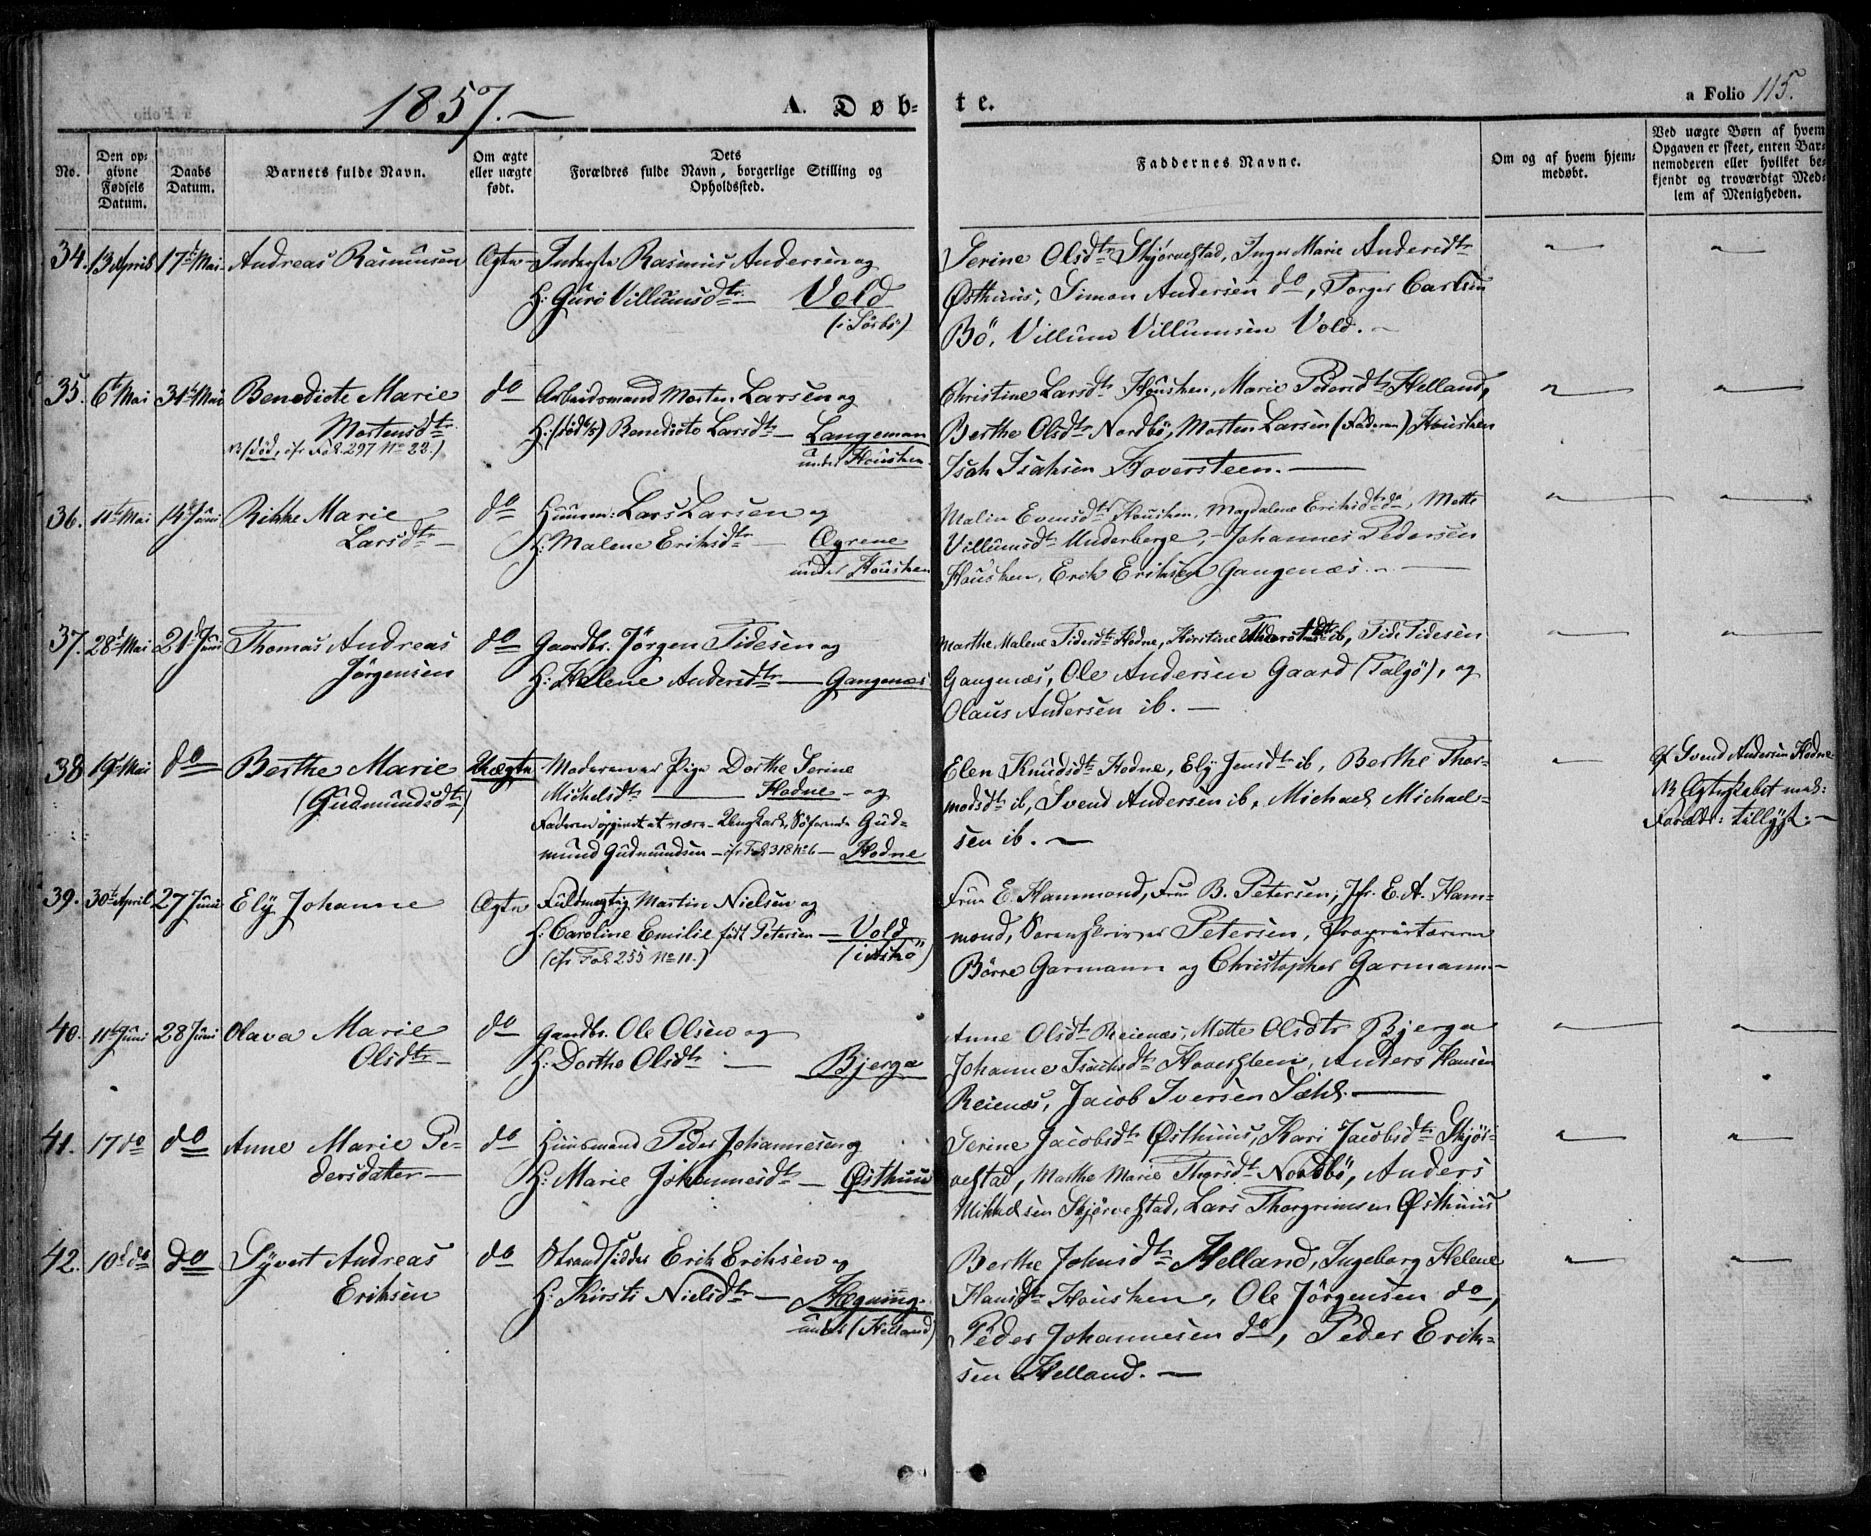 1857.
A. Døb-te.
a Folio 115.
No.
Den op-
givne
Fødsels
Datum.
Daabs
Datum.
Barnets fulde Navn.
Om ægte
eller uægte
født.
Dets
Forældres fulde Navn, borgerlige Stilling og
Opholdssted.
Faddernes Navne.
Om og af hvem hjem-
medøbt.
Ved uægte Børn af hvem
Opgaven er skeet, enten Bar-
nemoderen eller hvilket be-
kjendt og troværdigt Med-
lem af Menigheden.
34. 13 April 17de Mai Andreas Rasmussen Ægte Inderste Rasmus Andersen og
H: Guro Villumsdtr Vold
(i Sørbø)
Serine Olsdtr Skjørvestad, Inger Marie Andersdtr
Østhuus, Simon Andersen do, Torger Carlsen
Bö, Villum Villumsen Vold.
35. 6te Mai 31te Mai Benedicte Marie
Mortensdtr
NB (død, cfr Fol. 297 No 22.)
do Arbeidsmand Morten Larsen og
H: (død) Benedicte Larsdtr Langeman
under Housken
Christine Larsdtr Housken, Marie Pedersdtr Helland,
Berthe Olsdtr Nordbö, Morten Larsen (Faderen) Housken
Isak Isaksen Hoversteen.
36. 11te Mai 14de Juni Rikke Marie
Larsdtr
do Huusm: Lars Larsen og
H: Malene Eriksdtr Øgrene
under Housken
Malin Evensdtr Housken, Magdalene Eriksdtr do, Mette
Villumsdtr Underberge, Johannes Pedersen
Housken, Erik Eriksen Gangenæs.
37. 28de Mai 21de Juni Thomas Andreas
Jörgensen
do Gaardbr. Jörgen Tidesen og
H: Helene Andersdtr Gangenæs
Marthe Malene Tidesdtr Hodne, Kirstine ib, Tide Tidesen
Gangenæs, Ole Andersen Gaard (Talgö), og
Olaus Andersen ib.
38 19de Mai do Berthe Marie
(Gudmundsdtr)
Uægte Moderen er Pige Dorthe Serine
Michelsdtr Hodne og
Faderen opgivet at være Ungkarl, Söfarende Gud-
mund Gudmundsen cfr Fol 318 No 6 Hodne
Elen Knudsdtr Hodne, Ely Jensdtr ib, Berthe Thor-
modsdtr ib, Svend Andersen ib, Michael Michael-
sen ib.
af Svend Andersen Hodne
NB Ægteskabet mel:
Foræld: tillyst.
39. 30te April 27 Juni Ely Johanne Ægte Fuldmægtig Martin Nielsen og
H: Caroline Emilie født Petersen Vold
(cfr Fol 255 No 11.) (i Askö)
Fru E. Hammond, Fru B. Petersen, Jfr. E. A. Ham-
mond, Sorenskriver Petersen, Proprietærerne
Börre Garmann og Christopher Garmann
40. 11te Juni 28 Juni Olava Marie
Olsdtr
do Gaardbr. Ole Olsen og
H: Dorthe Olsdtr Bjerga
Anne Olsdtr Reienæs, Mette Olsdtr Bjerga
Johanne Isaksdtr Hoversteen, Anders Hansen
Reienæs, Jacob Iversen Sæhl.
41. 17 do do Anne Marie Pe-
dersdater
do Huusmand Peder Johannesen og
H: Marie Johannesdtr Østhuus
Serine Jacobsdtr Østhuus, Kari Jacobsdtr Skjör-
vestad, Marthe Marie Thorsdtr Nordbö, Anders
Mikkelsen Skjörvestad, Lars Thorgrimsen Østhuus
42. 10de do do Syvert Andreas
Eriksen
do Strandsidder Erik Eriksen og
H: Kirsti Nielsdtr Hegning
under (Helland)
Berthe Johnsdtr Helland, Ingeborg Helene
Hansdtr Housken, Ole Jörgensen do,
Peder Johannesen do, Peder Erik-
sen Helland.